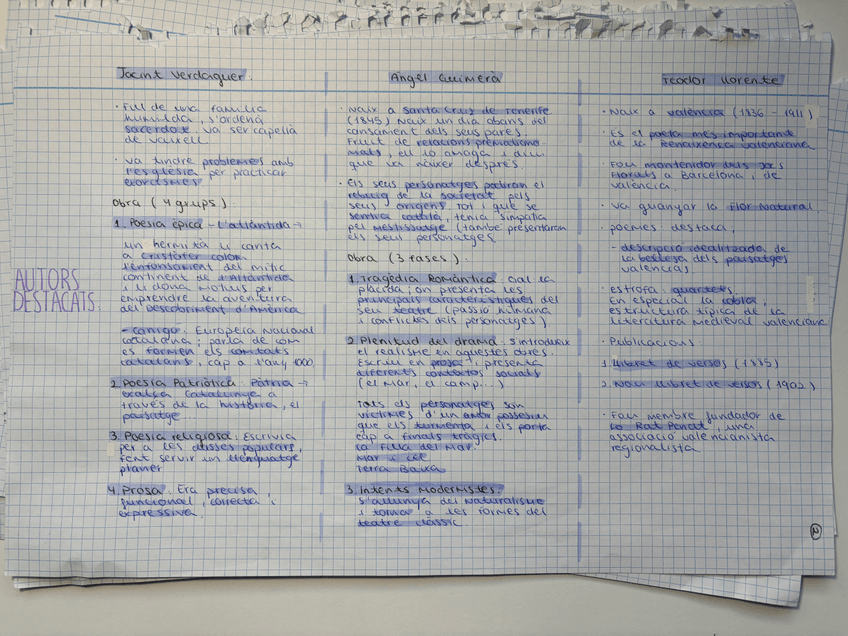 AUTORS
DESTACATS:
Jacint Verdaguer.
· Fill de una família
humilda, s'ordenà
sacerdot. Va ser capellà
de vaixell
· Va tindre problemes amb
l'església per practicar
exorcismes
Obra (4 grups).
1. Poesia èpica - L'atlàntida →
un hermità li canta
a Cristòfor Colom
l'enfonsament del mític
continent de l'Atlàntida
i li dona motius per
emprendre la aventura
del Descobriment d'Amèrica
- Canigó: Europeïa Nacional
catalana; parla de com
es formen els comtats
catalans, cap a l'any 1000.
2. Poesia Patriòtica: Pàtria →
exalça Catalunya a
través de la història, el
paisatge
3. Poesia religiosa: Escrivia
per a les classes populars,
fent servir un llenguatge
planer
4. Prosa: Era precisa,
funcional, correcta i
expressiva.
Àngel Guimerà
· Naix a Santa Cruz de Tenerife
(1845) Naix un dia abans del
cansament dels seus pares.
Fruit de relacions prematrimo-
nials, ell ho amaga i diu
que va nàixer després.
· Els seus personatges patiran el
rebuig de la societat pels
seus orígens. Tot i que se
sentia català, tenia simpatia
pel mestissatge (també presentaran
els seus personatges
Obra (3 fases).
1. Tragèdia Romàntica: Gal·la
Placídia; on presenta les
principals característiques del
seu teatre (passió humana
i conflictes dels personatges).
2 Plenitud del drama. S'introdueix
el realisme en aquestes obres.
Escriu en prosa i presenta
diferents contactes socials
(el mar, el camp...)
Tots els personatges són
víctimes d'un amor possessiu
que els turmenta i els porta
cap a finals tràgics.
La filla del Mar.
Mar i cel
Terra Baixa
3. Intents Modernistes:
s'allunya del naturalisme
i torna a les formes del
teatre clàssic
Teodor Llorente
· Naix a València (1836 - 1911)
· És el poeta més important
de la Renaixença valenciana
· Fou mantenidor dels Jocs
Florals a Barcelona i de
València.
· Va guanyar la Flor Natural.
· Poemes destaca,
- descripció idealitzada de
la bellesa dels paisatges
valencians
· Estrofa: quartets.
En especial la cobla,
estructura típica de la
literatura medieval valenciana
· Publicacions:
1. Llibret de versos (1885)
2. Nou llibret de versos (1902)
· Fou membre fundador de
Lo Rat Penat, una
associació valencianista
regionalista
2